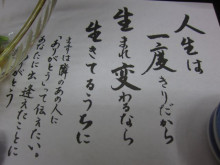 人生は
一度きりだから
生まれ変わるなら
生きてるうちに
まずは隣りのあの人に
"ありがとう"って伝えたい。
あなたに出逢えたことに
ありがとう